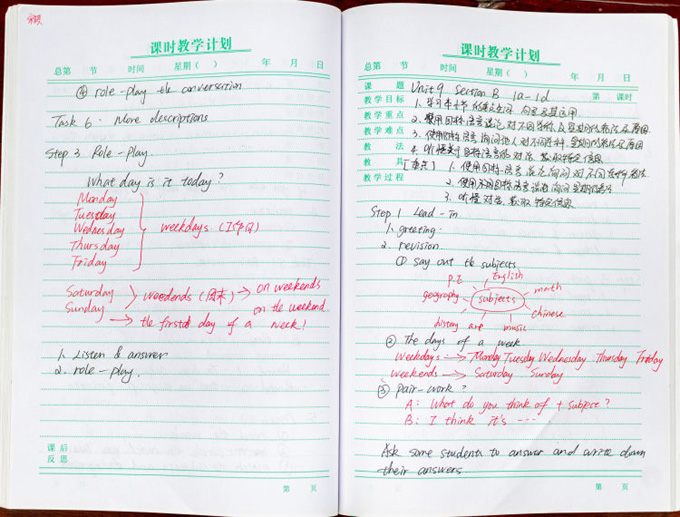 课时教学计划
总第 节 时间 星期( ) 年 月 日
④ role-play the conversation
Task 6: More descriptions
Step 3 Role-play
What day is it today?
Monday
Tuesday
Wednesday
Thursday
Friday
weekdays (工作日)
Saturday
Sunday
weedends (周末) → on weekends
on the weekend
→ the firstd day of a week!
1. Listen & answer
2. role-play.
课后
反思
第 页
课时教学计划
总第 节 时间 星期( ) 年 月 日
课题 Unit 9 Section B 1a-1d 第 课时
教学目标 1. 学习本节
教学重点 2.
教学难点 3. 使用目标语言询问他人对不同学科
教法 4. 听懂
教具 [重点] 1. 使用目标语言
教学过程 2.
3. 听懂对话, 获取特定信息
Step 1 Lead-in
1. greeting.
2. revision
① Say out the subjects
P.E English
geography subjects math
chinese
history art music
② The days of a week
Weekdays → Monday Tuesday Wednesday Thursday Friday
weekends → Saturday Sunday
③ pair-work?
A: What do you think of + subject?
B: I think it's ---
Ask some students to answer and write down
their answers
第 页